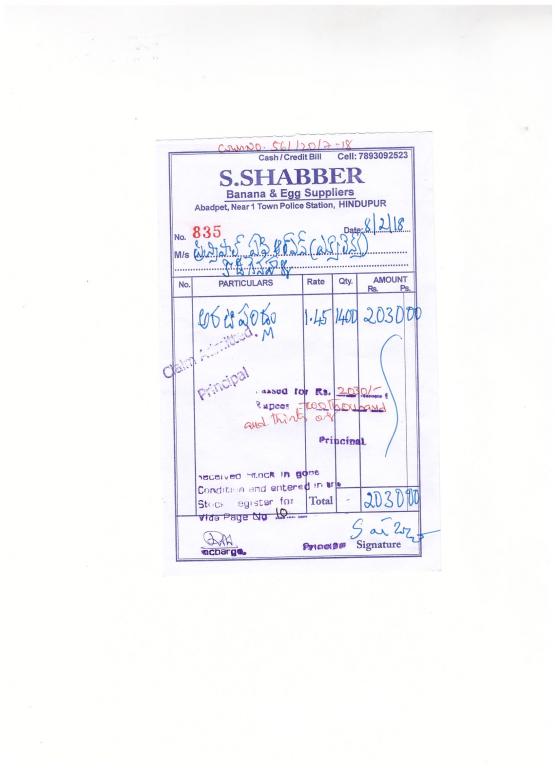 561/2017-18
Cash/Credit Bill Cell: 7893092523
S.SHABBER
Banana & Egg Suppliers
Abadpet, Near 1 Town Police Station, HINDUPUR
No. 835 Date: 8/2/18
M/s
No. PARTICULARS Rate Qty. AMOUNT
Rs. Ps.
అరటిపండ్లు 1.45 1400 2030 00
M
Claim Admitted.
Principal
assed for Rs. 2030/-
Rupees two thousand
and thirty only
Principal
received stock in good
Condition and entered in the
Stock egister for Total - 2030 00
Vide Page No 10
Principal Signature